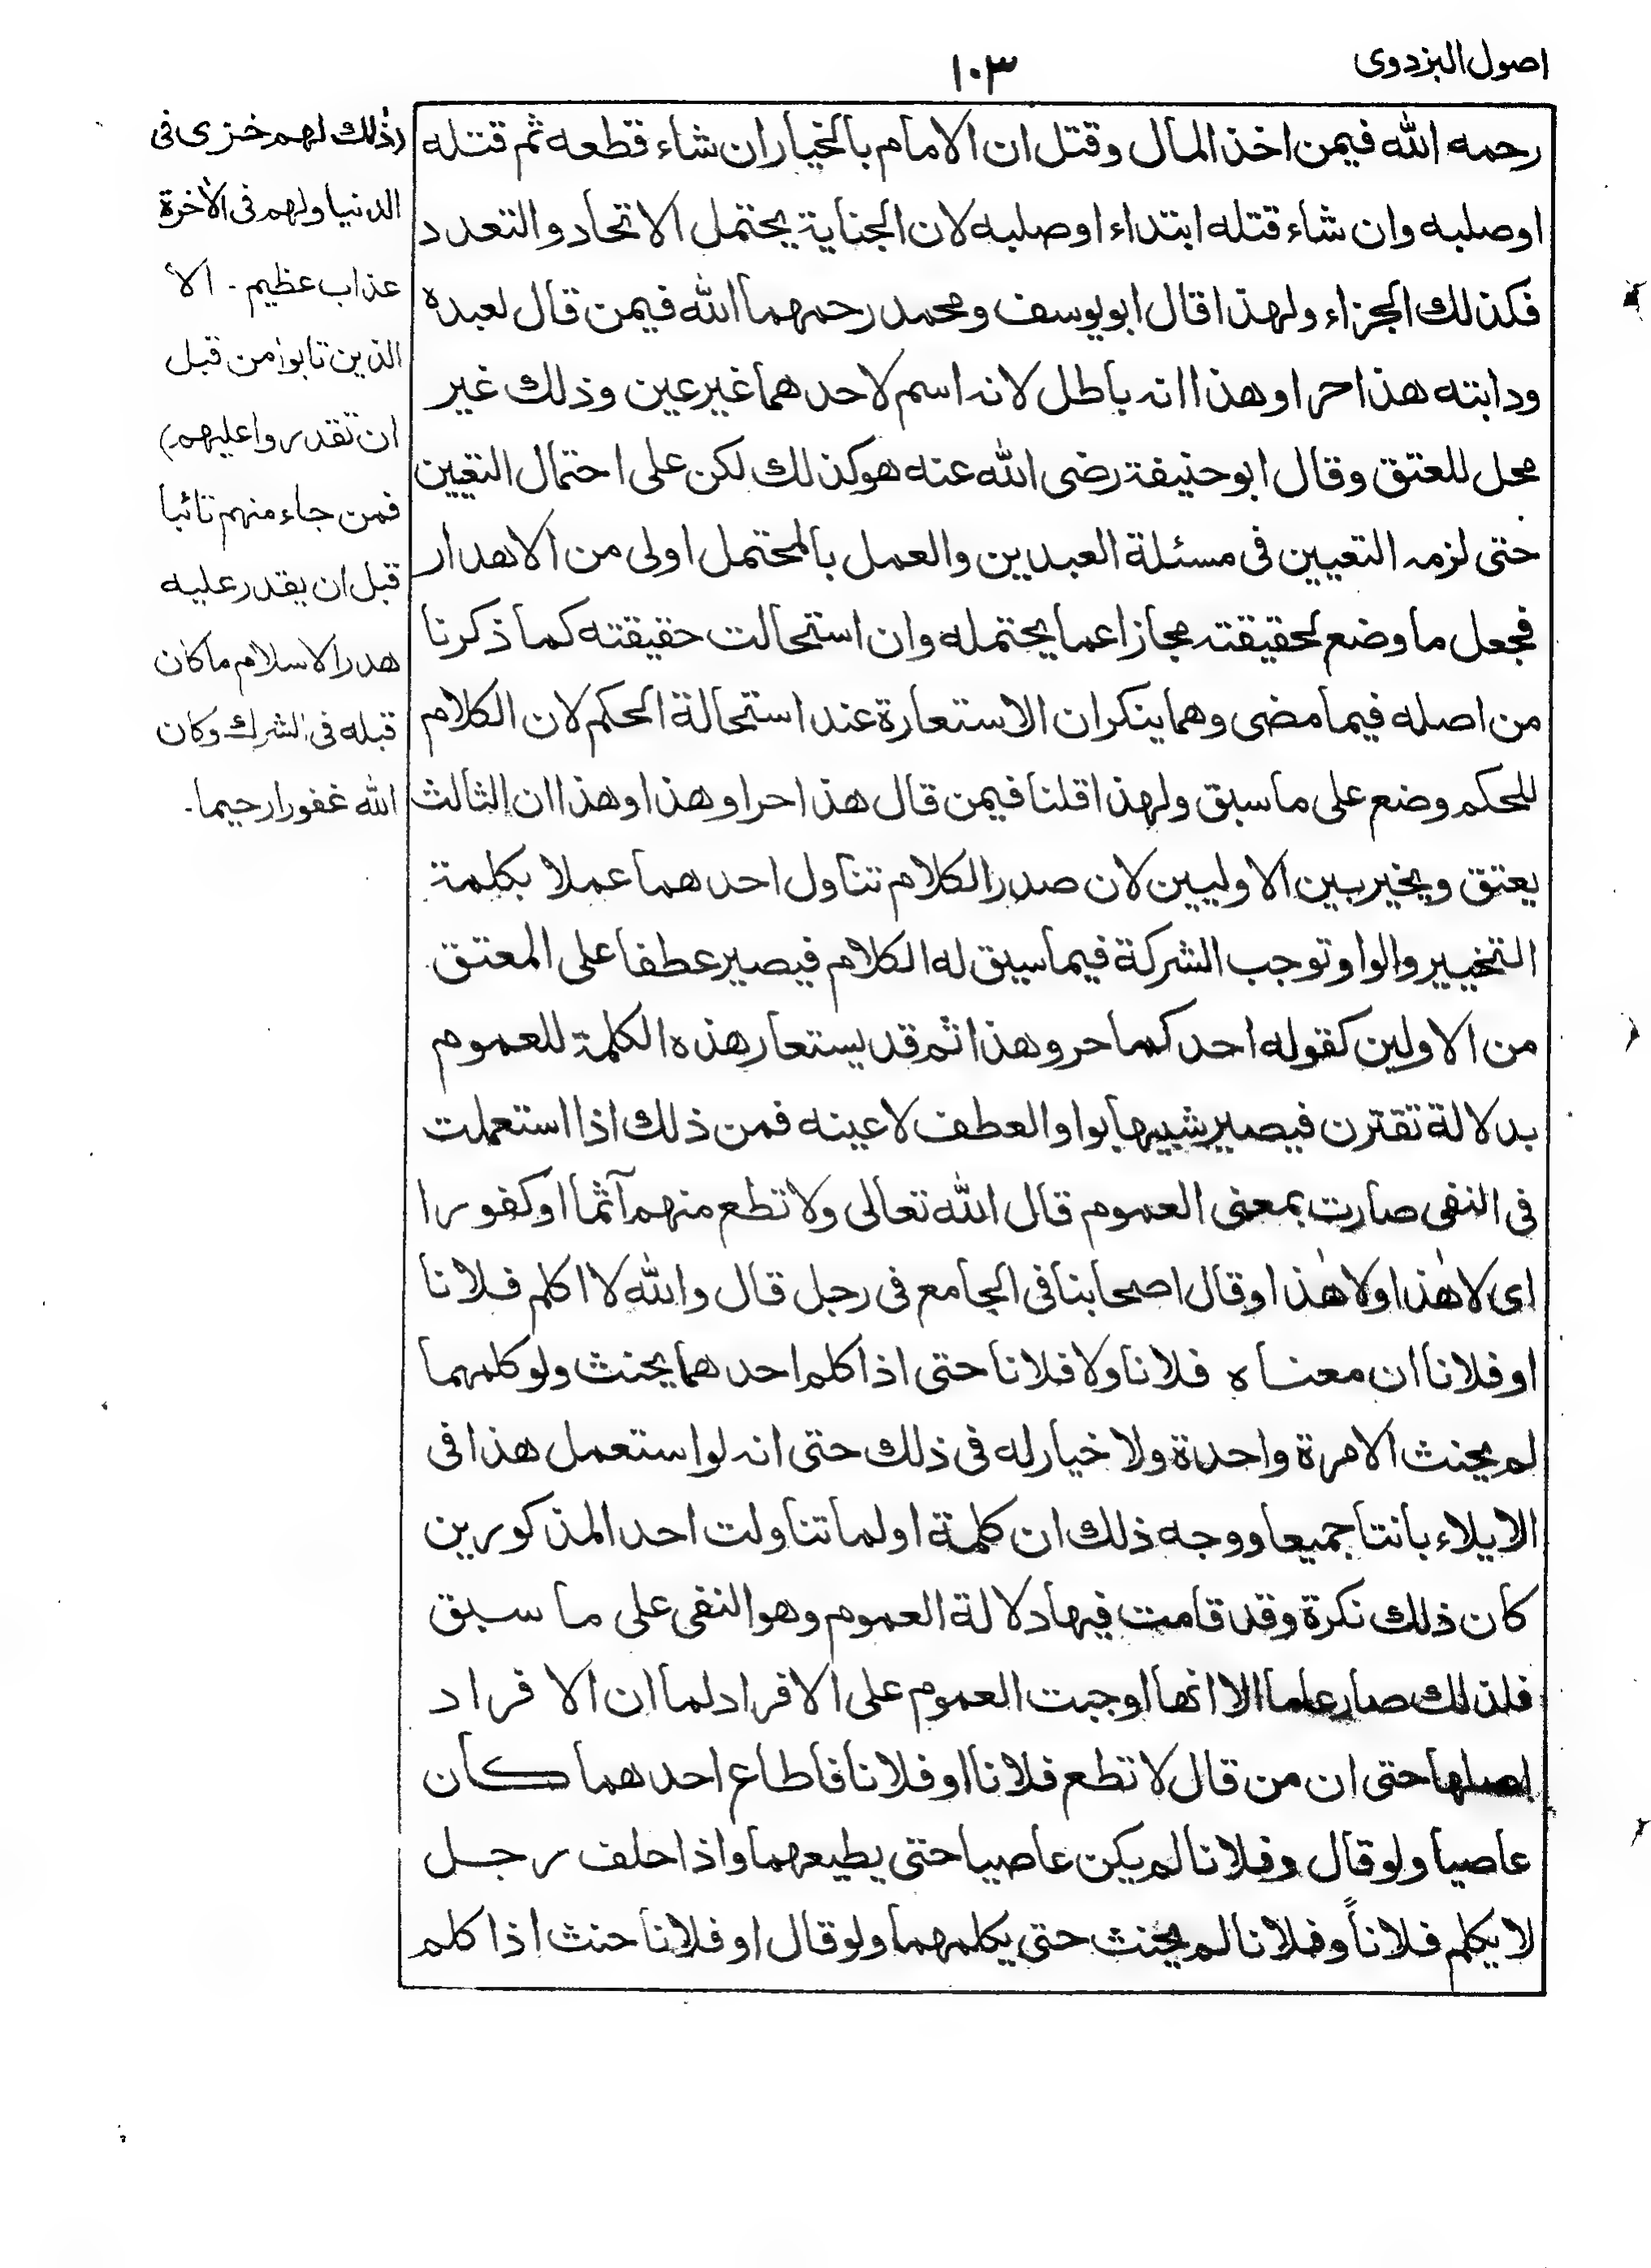 اصول البزدوی
١٠٣
رحمه الله فيمن اخذ المال وقتل ان الامام بالخيار ان شاء قطعه ثم قتله
اوصلبه وان شاء قتله ابتداء اوصلبه لان الجناية يحتمل الاتحاد والتعدد
فكذلك الجزاء ولهذا قال ابويوسف ومحمد رحمهما الله فيمن قال لعبده
ودابته هذا حر اوهذا انه باطل لانه اسم لاحدهما غير عين وذلك غير
محل للعتق وقال ابوحنيفة رضى الله عنه هوكذلك لكن على احتمال التعيين
حتى لزمه التعيين فى مسئلة العبدين والعمل بالمحتمل اولى من الاهدار
فجعل ما وضع لحقيقته مجازا عما يحتمله وان استحالت حقيقته كما ذكرنا
من اصله فيما مضى وهما ينكران الاستعارة عند استحالة الحكم لان الكلام
للحكم وضع على ما سبق ولهذا قلنا فيمن قال هذا حر اوهذا وهذا ان الثالث
يعتق ويخير بين الاوليين لان صدر الكلام تناول احدهما عملا بكلمة
التخيير والواو توجب الشركة فيما سيق له الكلام فيصير عطفا على المعتق
من الاولين كقوله احدكما حر وهذا ثم قد يستعار هذه الكلمة للعموم
بدلالة تقترن فيصير شبيها بواو العطف لاعينه فمن ذلك اذا استعملت
فى النفى صارت بمعنى العموم قال الله تعالى ولا تطع منهم آثما اوكفورا
اى لا هٰذا ولا هٰذا وقال اصحابنا فى الجامع فى رجل قال والله لا اكلم فلانا
اوفلانا ان معناه فلانا ولا فلانا حتى اذا كلم احدهما يحنث ولوكلمهما
لم يحنث الامرة واحدة ولا خيار له فى ذلك حتى انه لواستعمل هذا فى
الايلاء بانتا جميعا ووجه ذلك ان كلمة اولما تناولت احد المذكورين
كان ذلك نكرة وقد قامت فيها دلالة العموم وهو النفى على ما سبق
فلذلك صار عاما الا انها اوجبت العموم على الافراد لما ان الافراد
اصلها حتى ان من قال لا تطع فلانا اوفلانا فاطاع احدهما كان
عاصيا ولوقال وفلانا لم يكن عاصيا حتى يطيعهما واذا حلف رجل
لا يكلم فلاناً وفلانا لم يحنث حتى يكلمهما ولوقال اوفلانا حنث اذا كلم
(ذٰلك لهم خزى فى
الدنيا ولهم فى الأخرة
عذاب عظيم - الا
الذين تابوا من قبل
ان تقدروا عليهم)
فمن جاء منهم تائبا
قبل ان يقدر عليه
هدر الاسلام ما كان
قبله فى الشرك وكان
الله غفورا رحيما -